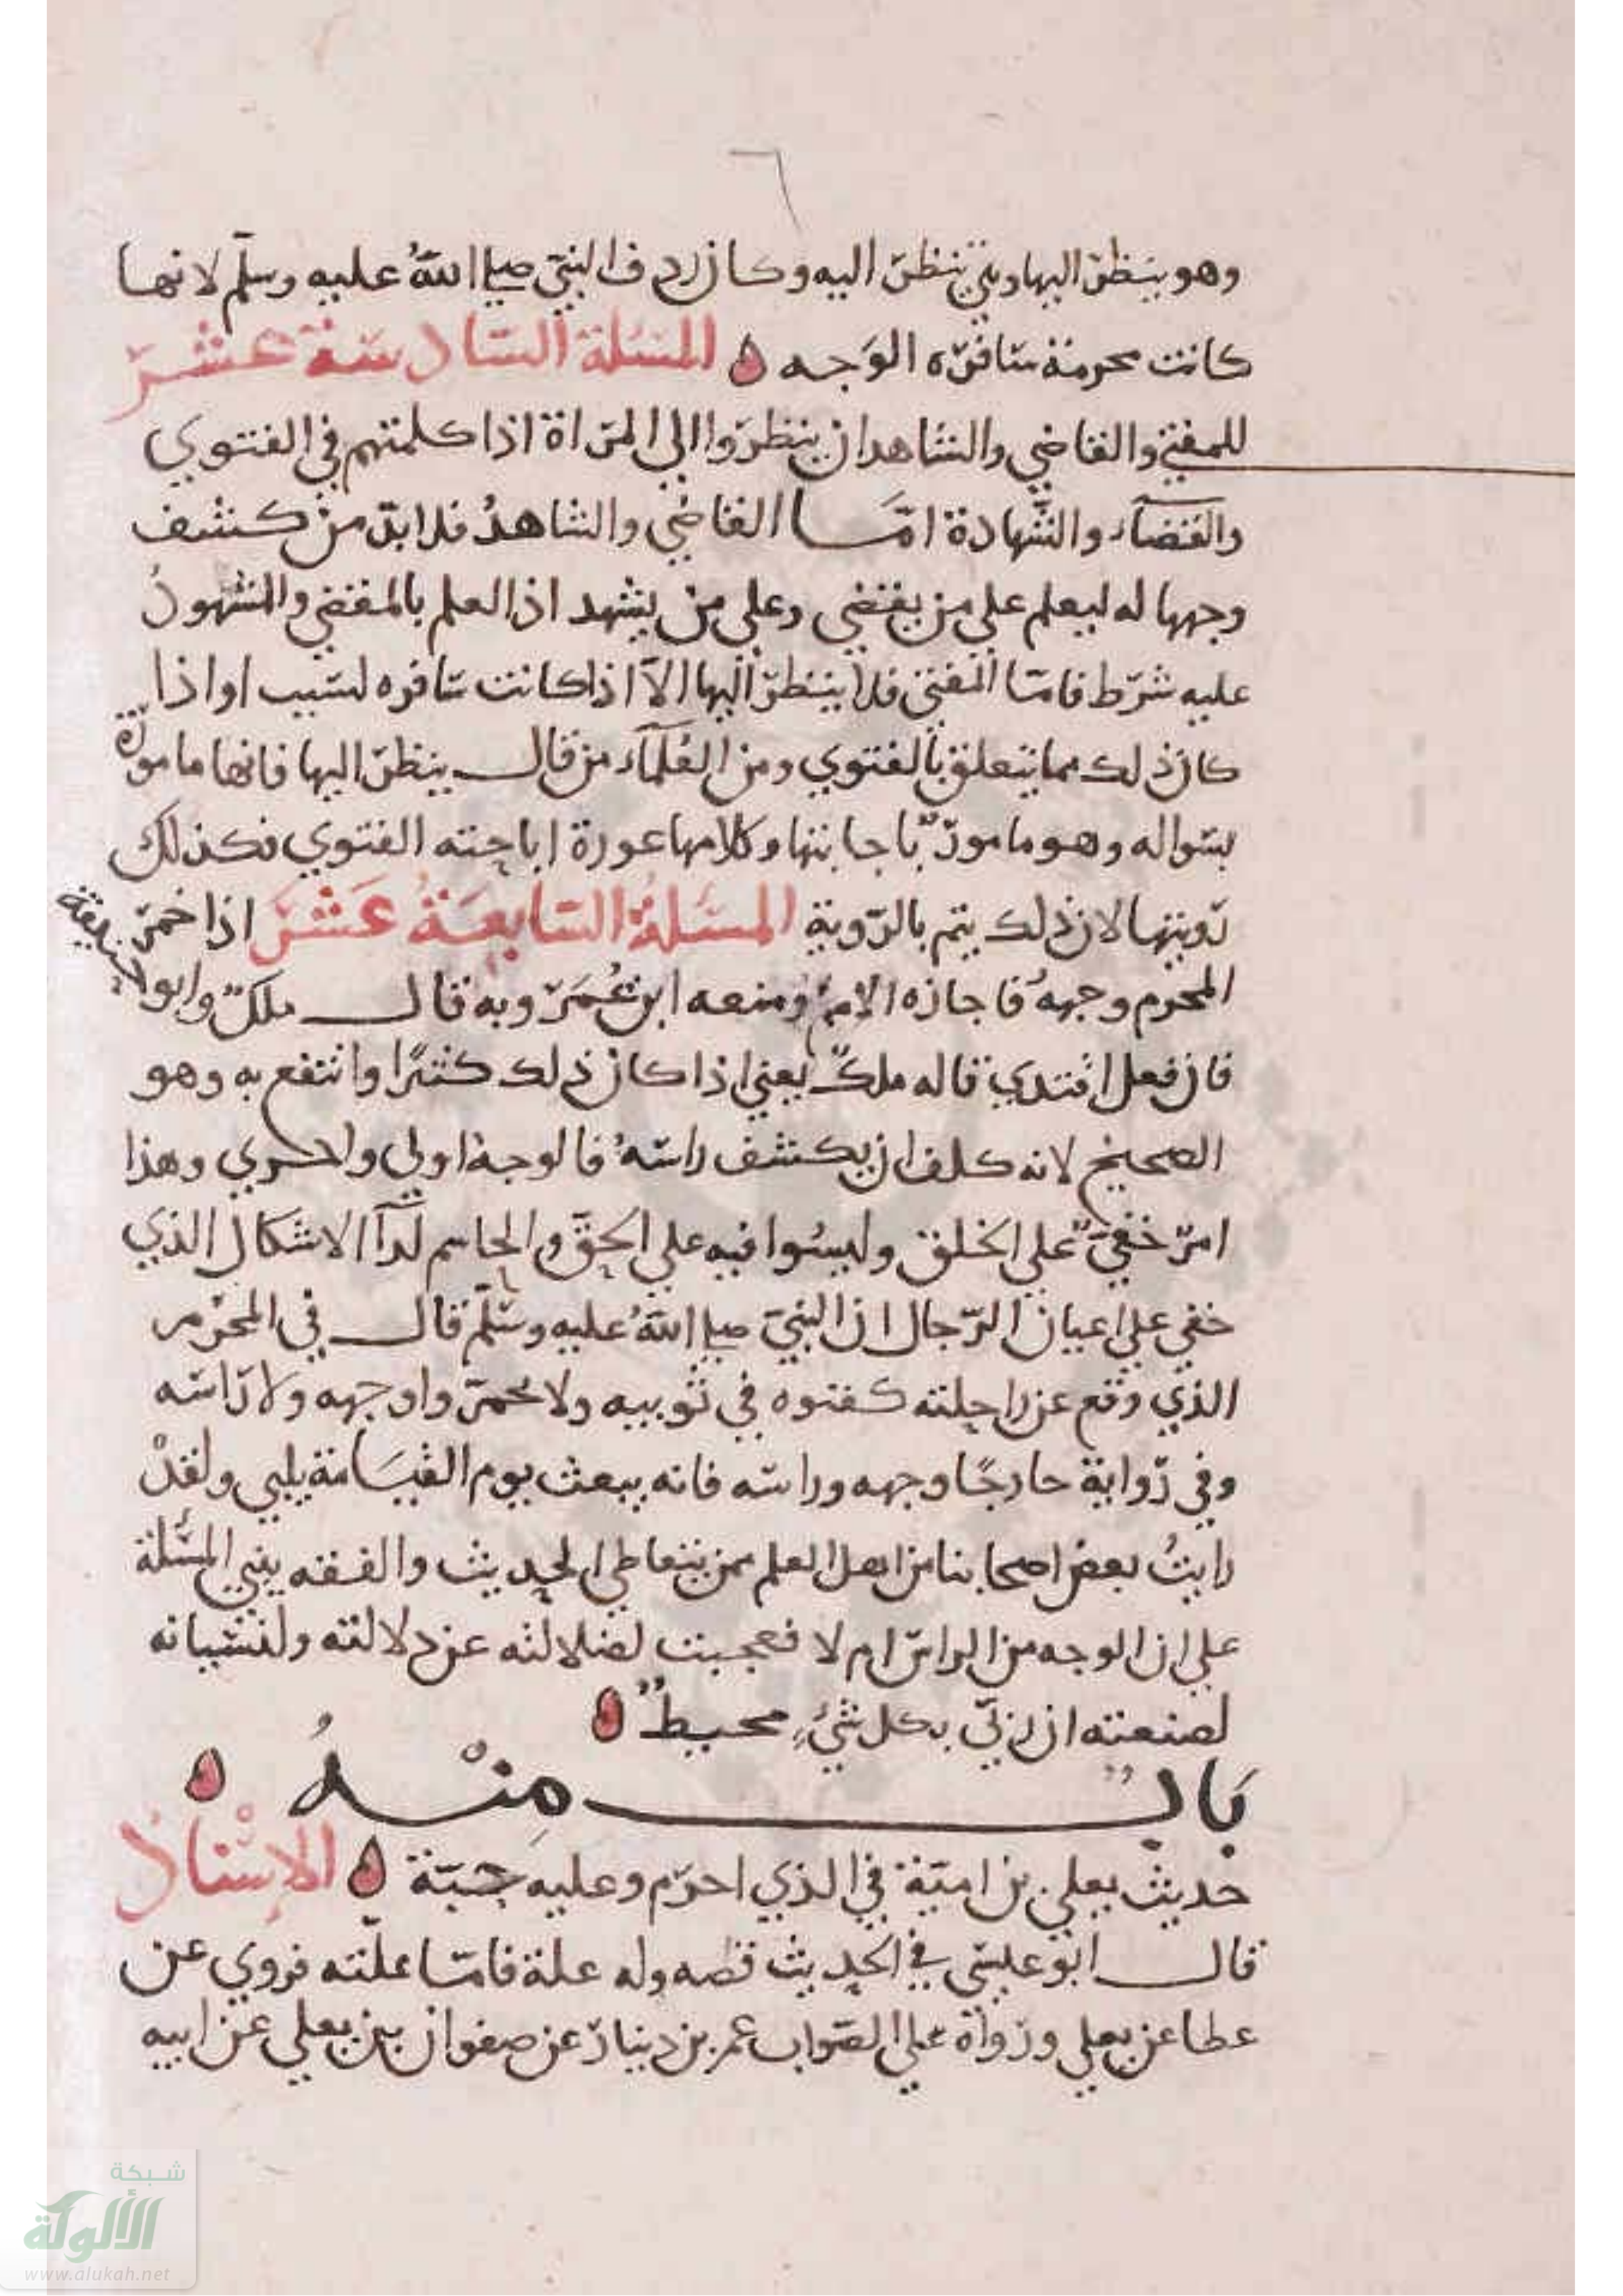 وهو ينظر اليها وهي تنظر اليه وكان ردف النبي صلى الله عليه وسلم لانها
كانت محرمة سافره الوجه ه المسئلة السادسة عشر
للمفتي والقاضي والشاهد ان ينظروا الي المراة اذا كلمتهم في الفتوي
والقضآء والشهادة امّا القاضي والشاهدُ فلا بدّ من كشف
وجهها له ليعلم علي من يقضي وعلي من يشهد اذ العلم بالمقضي والمشهود
عليه شرط فامّا المفتي فلا ينظر اليها الا اذا كانت سافره لسبب او اذا
كان ذلك مما يتعلق بالفتوي ومن العُلمآء من قال ينظر اليها فانها مامورة
بسواله وهو مامورٌ باجابتها وكلامها عورة اباحته الفتوي فكذلك
رويتها لان ذلك يتم بالروية المسئلةُ السابعَةُ عَشَر اذا خمّر
المحرم وجههُ فاجازه الامة ومنعه ابن عُمَر وبه قال ملكٌ وابو حنيفة
فان فعل افتدي قاله ملكٌ يعني اذا كان ذلك كثيرًا وانتفع به وهو
الصحيح لانه كلف ان يكشف راسهُ فالوجه اولي واحري وهذا
امر خفيّ علي الخلق وليسوا فيه علي الحق والحاسم لدآ الاشكال الذي
خفي علي اعيان الرجال ان النبي صلى الله عليه وسلّم قال في المحرم
الذي وقع عن راحلته كفنوه في ثوبيه ولا تخمروا وجهه ولا راسه
وفي رواية خارجًا وجهه وراسه فانه يبعث يوم القيَامة يلبي ولقدْ
رايتُ بعض اصحابنا من اهل العلم ممن يتعاطي الحديث والفقه يبني المسئلة
علي ان الوجه من الراس ام لا فعجبت لضلالته عن دلالته ولنسيانه
لصنعته ان ربي بكل شيءٍ محيطٌ ه
بَابٌ مِنْهُ ه
حديث يعلي بن امية في الذي احرم وعليه جبّة ه الاسْناد
قال ابو عيسي في الحديث قصه وله علة فامّا علّته فروي عن
عطا عن يعلي ورواهُ علي الصّواب عمر بن دينار عن صفوان بن يعلي عن ابيه
شبكة
الألوكة
www.alukah.net